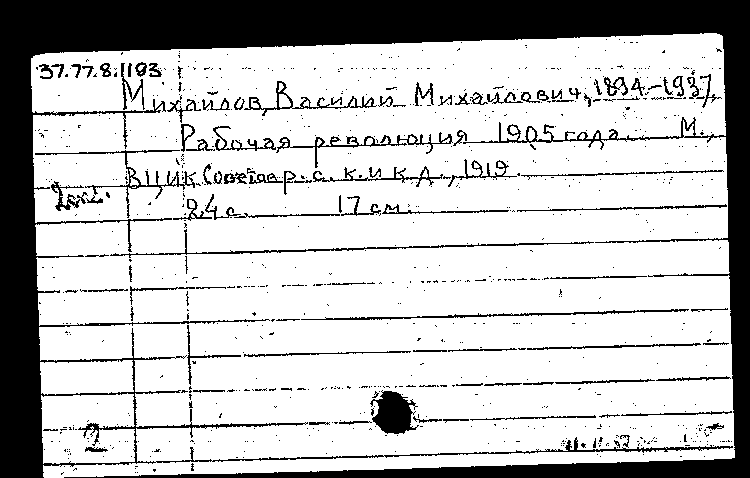 37.77.8.1193
Михайлов, Василий Михайлович, 1894-1937.
Рабочая революция 1905 года. М.,
ВЦИК Советов р. с. к. и к. д., 1919.
2экз.
24 с. 17 см.
2